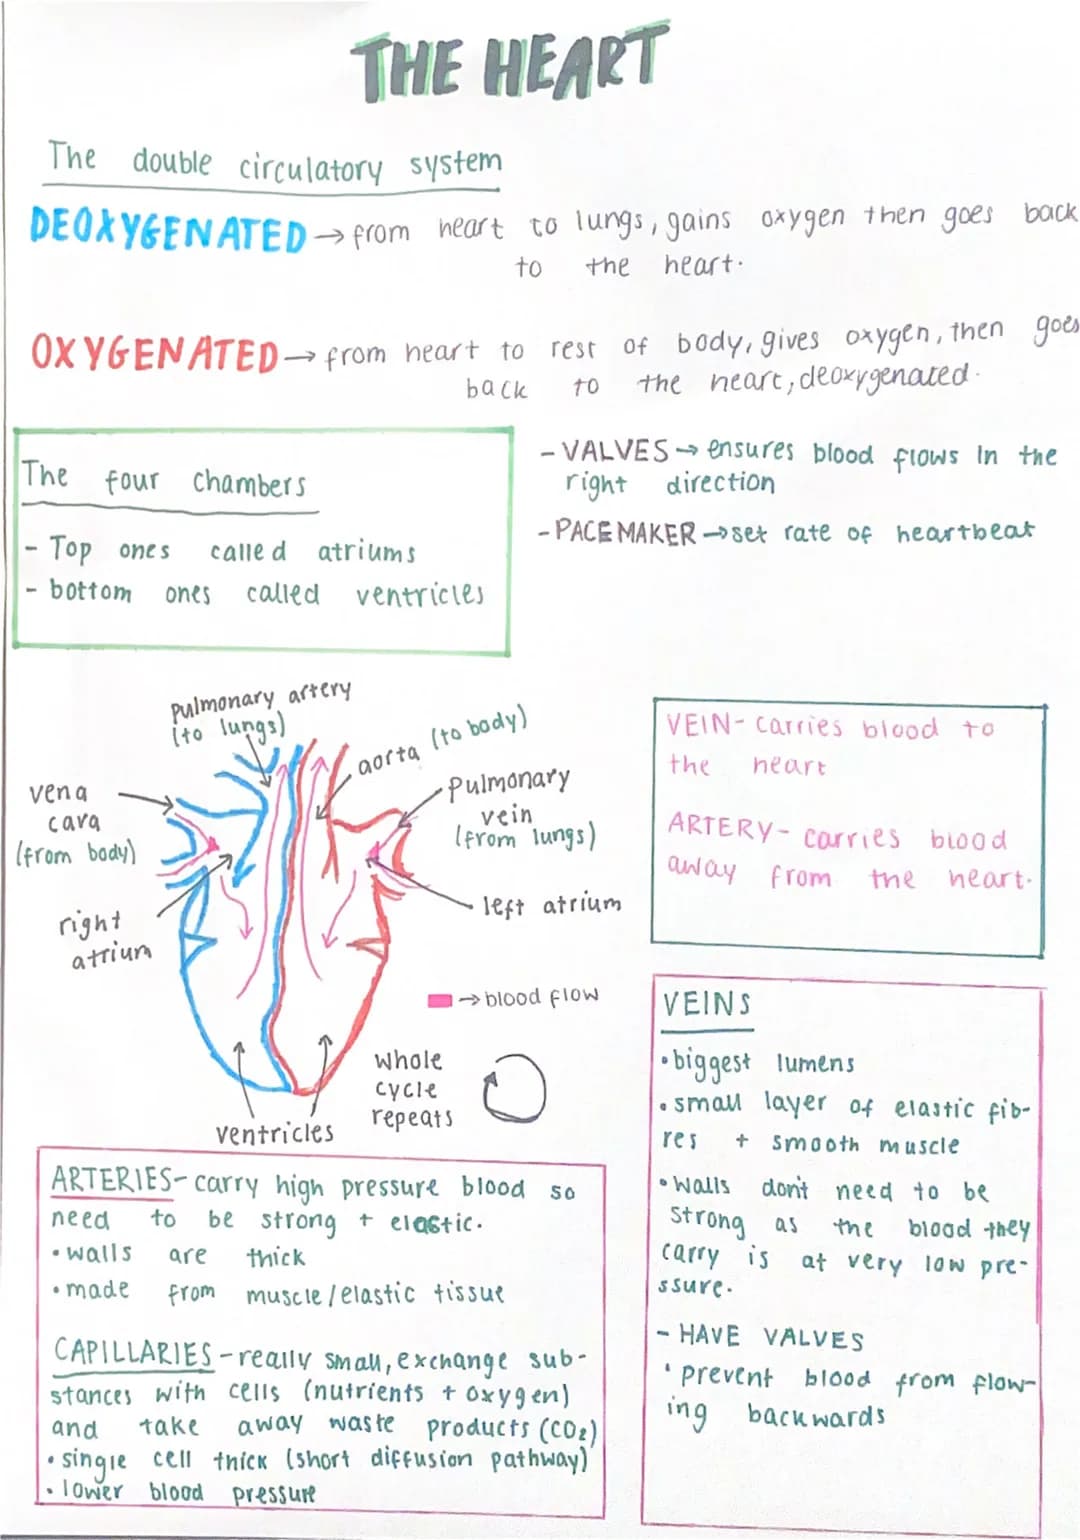 THE HEART
The double circulatory system
DEOXYGENATED → from heart to lungs, gains oxygen then goes back
to the heart.
OXYGENATED → from heart to rest of body, gives oxygen, then goes
back to the heart, deoxygenated.
The four chambers
- Top ones called atriums
- bottom ones called ventricles
- VALVES → ensures blood flows in the
right direction
- PACEMAKER → set rate of heartbeat
pulmonary artery
(to lungs)
aorta (to body)
vena
cara
(from body)
Pulmonary
vein
(from lungs)
right
atrium
left atrium
→ blood flow
whole
cycle
repeats
ventricles
VEIN - carries blood to
the heart
ARTERY - carries blood
away from the heart.
ARTERIES - carry high pressure blood so
need to be strong + elastic.
• walls are thick
• made from muscle/elastic tissue
CAPILLARIES - really small, exchange sub-
stances with cells (nutrients + oxygen)
and take away waste products (CO₂)
• single cell thick (short diffusion pathway)
• lower blood pressure
VEINS
• biggest lumens
• small layer of elastic fib-
res + smooth muscle
• walls don't need to be
strong as the blood they
carry is at very low pre-
ssure.
- HAVE VALVES
• prevent blood from flow-
ing backwards